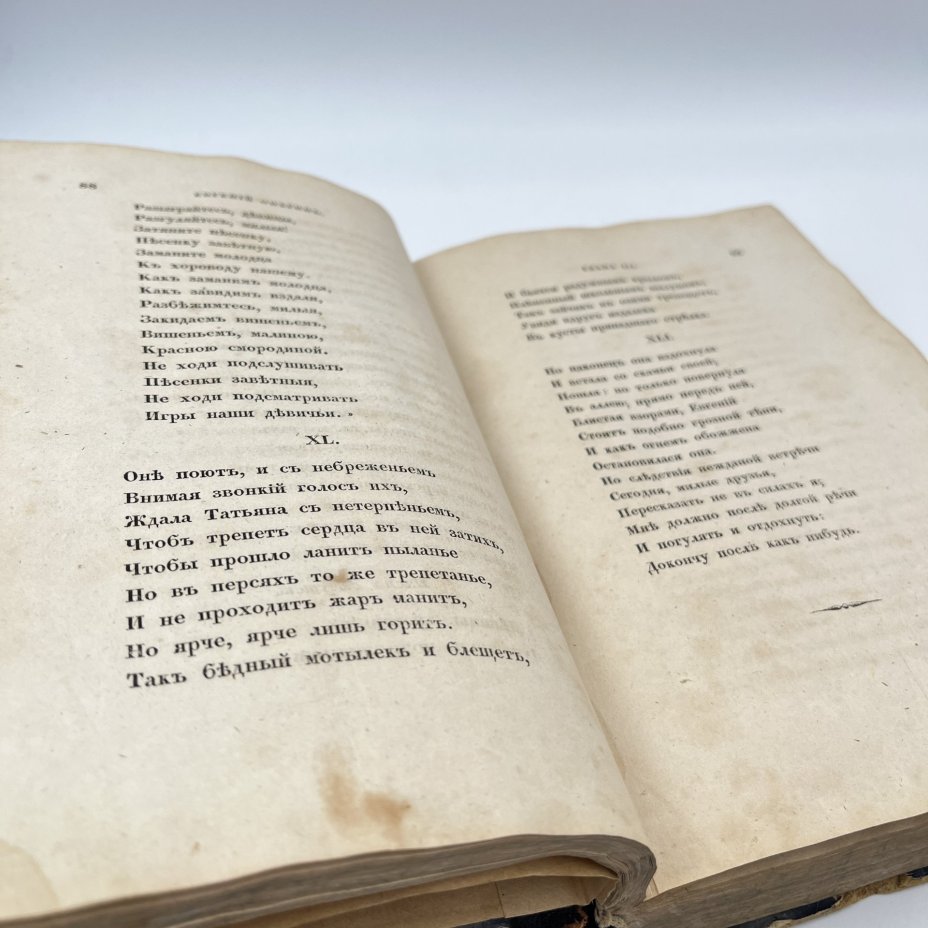 88
ЕВГЕНІЙ ОНѢГИНЪ.
Разыграйтесь, дѣвицы,
Разгуляйтесь, милыя!
Затяните пѣсенку,
Пѣсенку завѣтную,
Заманите молодца
Къ хороводу нашему.
Какъ заманимъ молодца,
Какъ завидимъ издали,
Разбѣжимтесь, милыя,
Закидаемъ вишеньемъ,
Вишеньемъ, малиною,
Красною смородиной.
Не ходи подслушивать
Пѣсенки завѣтныя,
Не ходи подсматривать
Игры наши дѣвичьи.»
XL.
Онѣ поютъ, и съ небреженьемъ
Внимая звонкій голосъ ихъ,
Ждала Татьяна съ нетерпѣньемъ,
Чтобъ трепетъ сердца въ ней затихъ,
Чтобы прошло ланитъ пыланье
Но въ персяхъ то же трепетанье,
И не проходитъ жаръ ланитъ,
Но ярче, ярче лишь горитъ.
Такъ бѣдный мотылекъ и блещетъ,
ГЛАВА III.
И бьется радужнымъ крыломъ,
Плѣненный школьнымъ шалуномъ;
Такъ зайчикъ въ озими трепещетъ,
Увидя вдругъ издалека
Въ кусты припадшаго стрѣлка.
XLI.
Но наконецъ она вздохнула
И встала со скамьи своей;
Пошла: но только повернула
Въ аллею; прямо передъ ней,
Блистая взорами, Евгеній
Стоитъ подобно грозной тѣни,
И какъ огнемъ обожжена
Остановилася она.
Но слѣдствія нежданой встрѣчи
Сегодня, милые друзья,
Пересказать не въ силахъ я;
Мнѣ должно послѣ долгой рѣчи
И погулять и отдохнуть:
Докончу послѣ какъ нибудь.